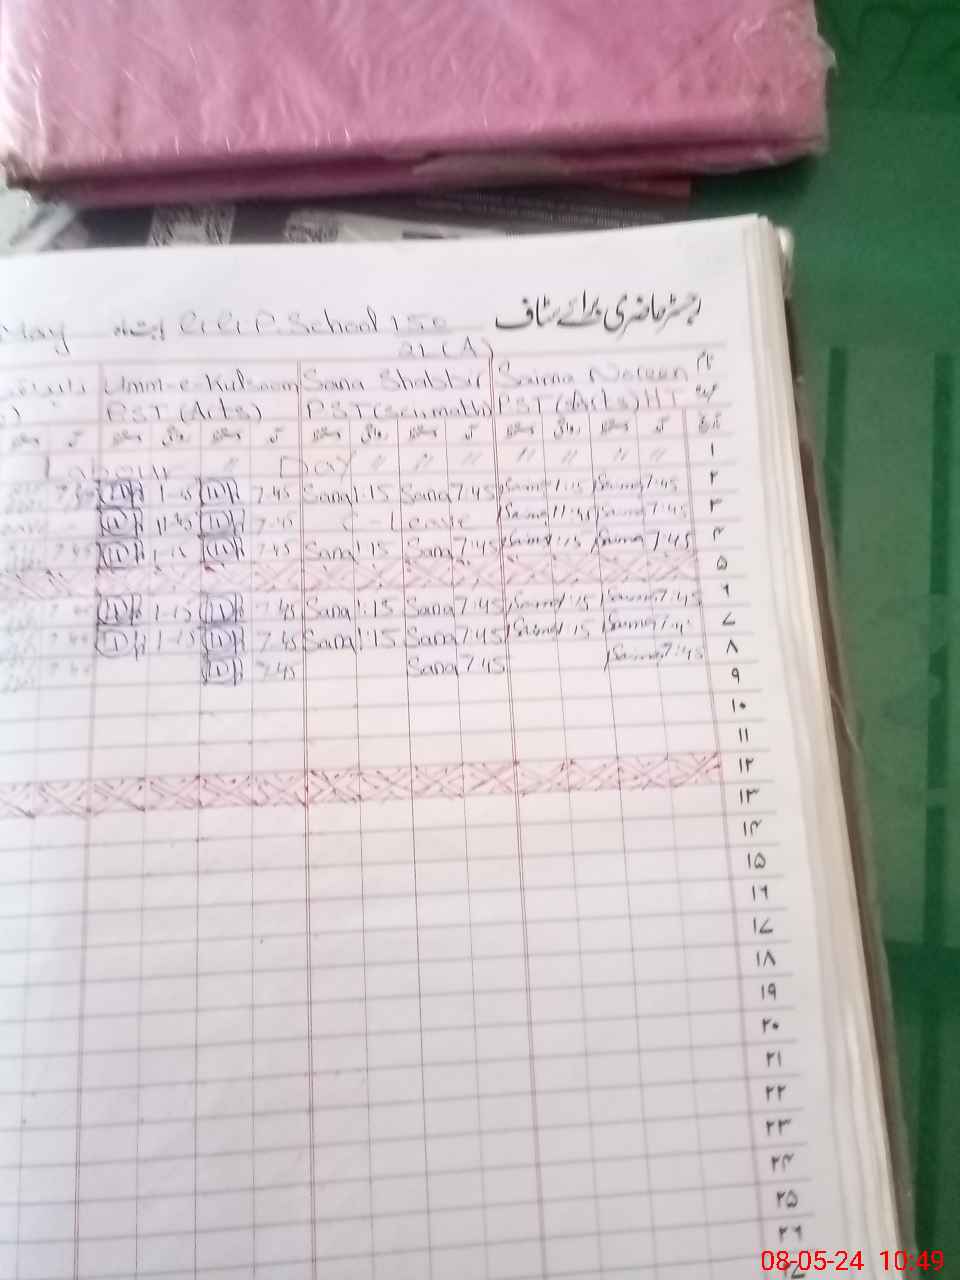 رجسٹر حاضری برائے سٹاف
May بابت ماہ G.G.P. School 150
21 (A)
نام Saima Noreen Sana Shabbir Umm-e-Kulsoom
عہدہ P.S.T (Arts) HT P.S.T (Sci math) P.S.T (Arts)
تاریخ آمد دستخط روانگی دستخط آمد دستخط روانگی دستخط آمد دستخط روانگی دستخط آمد دستخط
۱ Labour " Day " " " " " "
۲ 7:45 Saima 1:15 Saima 7:45 Sana 1:15 Sana 7.45 1-15
۳ 7:45 Saima 11:45 Saima C-Leave 7.45 11-45
۴ 7:45 Saima 1:15 Saima 7:45 Sana 1:15 Sana 7.45 1-15 7.45
۵
۶ 7:45 Saima 1:15 Saima 7:45 Sana 1:15 Sana 7.45 1-15
۷ Saima 1:15 Saima 7:45 Sana 1:15 Sana 7.45 1-15
۸ 7:45 Saima 7:45 Sana 7.45
۹
۱۰
۱۱
۱۲
۱۳
۱۴
۱۵
۱۶
۱۷
۱۸
۱۹
۲۰
۲۱
۲۲
۲۳
۲۴
۲۵
۲۶
08-05-24 10:49